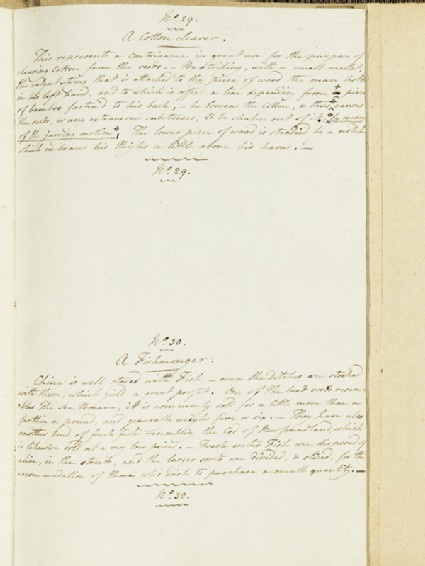 No. 29.
A Cotton clearer.
This represents a contrivance in great use for the purpose of
clearing Cotton from the seeds. – By striking, with a small mallet,
the catgut string that is attached to the piece of wood the man holds
in his left hand, and to which is affixed a line depending from the piece
of bamboo fastened to his back, – he loosens the Cotton, & thus causes
the seeds, or any extraneous substances, to be shaken out of it, by means
of the jarring motion. The lower piece of wood is steadied by a
which in bears his thighs a little above his hams.
No. 29.
No. 30.
A Fishmonger.
China is well stored with Fish – even the ditches are stocked
with them, which yield a great profit. One of the best sort resem-
bles the Sea Bream, it is commonly sold for a little more than a
farthing a pound, and generally weighs five or six. – They have also
another kind of fresh fish resembling the Cod of Newfoundland, which
is likewise sold at a very low price. – Fresh water Fish are disposed of
alive, in the streets, and the larger sorts are divided, & sliced, for the
accommodation of those who wish to purchase a small quantity. –
No. 30.